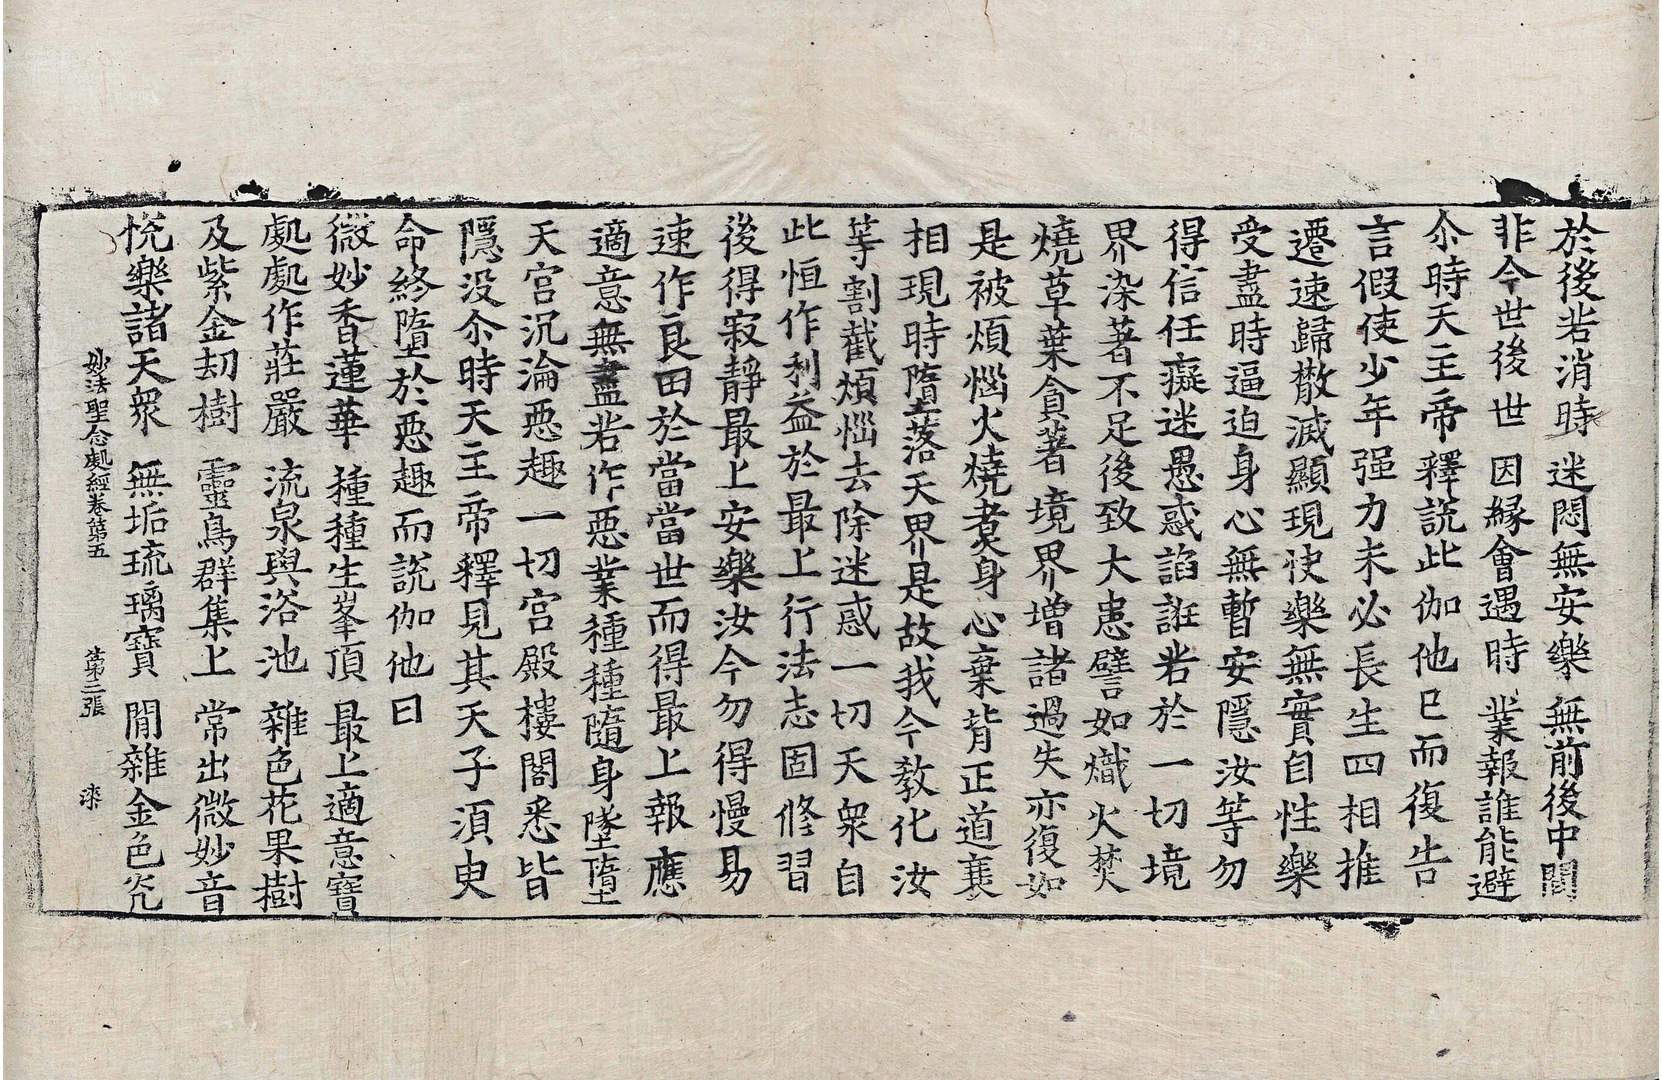 於後若消時 迷悶無安樂 無前後中間
非今世後世 因緣會遇時 業報誰能避
尒時天主帝釋說此伽他已而復告
言假使少年强力未必長生四相推
遷速歸散滅顯現快樂無實自性樂
受盡時逼迫身心無暫安隱汝等勿
得信任癡迷愚惑諂誑若於一切境
界染著不足後致大患譬如熾火焚
燒草葉貪著境界增諸過失亦復如
是被煩惱火燒煮身心棄背正道衰
相現時墮落天界是故我今教化汝
等割截煩惱去除迷惑一切天衆自
此恒作利益於最上行法志固修習
後得寂靜最上安樂汝今勿得慢易
速作良田於當當世而得最上報應
適意無盡若作惡業種種隨身墜墮
天宮沉淪惡趣一切宮殿樓閣悉皆
隱没尒時天主帝釋見其天子須臾
命終墮於惡趣而說伽他曰
微妙香蓮華 種種生峯頂 最上適意寶
處處作莊嚴 流泉與浴池 雜色花果樹
及紫金刧樹 靈鳥群集上 常出微妙音
悅樂諸天衆 無垢琉璃寶 間雜金色瓷
妙法聖念處經卷第五 第三張 漆